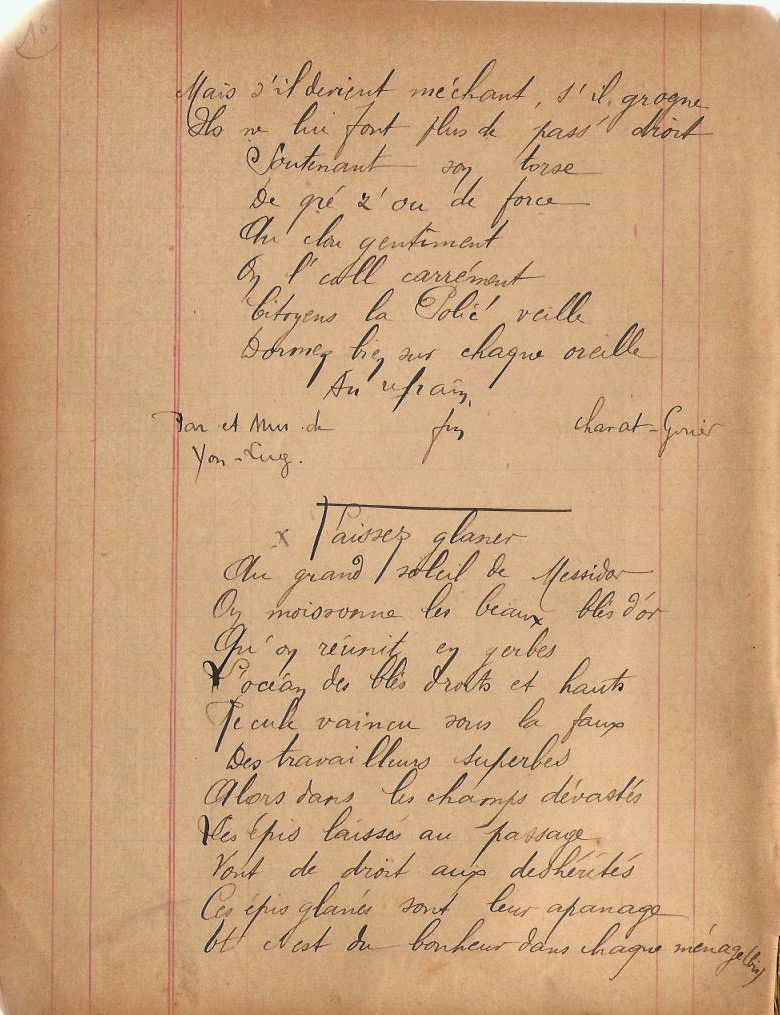 16
Mais s'il devient méchant, s'il grogne
Ils ne lui font plus de pass' droit
Soutenant son torse
De gré z'ou de force
Au clou gentiment
On l'coll carrément
Citoyens la Polic' veille
Dormez bien sur chaque oreille
Au refrain
Par et Mus. de fin
Yon-Lug.
x Laissez glaner
Au grand soleil de Messidor
On moissonne les beaux blés d'or
Qu'on réunit en gerbes
L'océan des blés droits et hauts
Recule vaincu sous la faux
Des travailleurs superbes
Alors dans les champs dévastés
Les épis laissés au passage
Vont de droit aux deshérités
Ces épis glanés sont leur apanage
Et c'est du bonheur dans chaque ménage (bis)